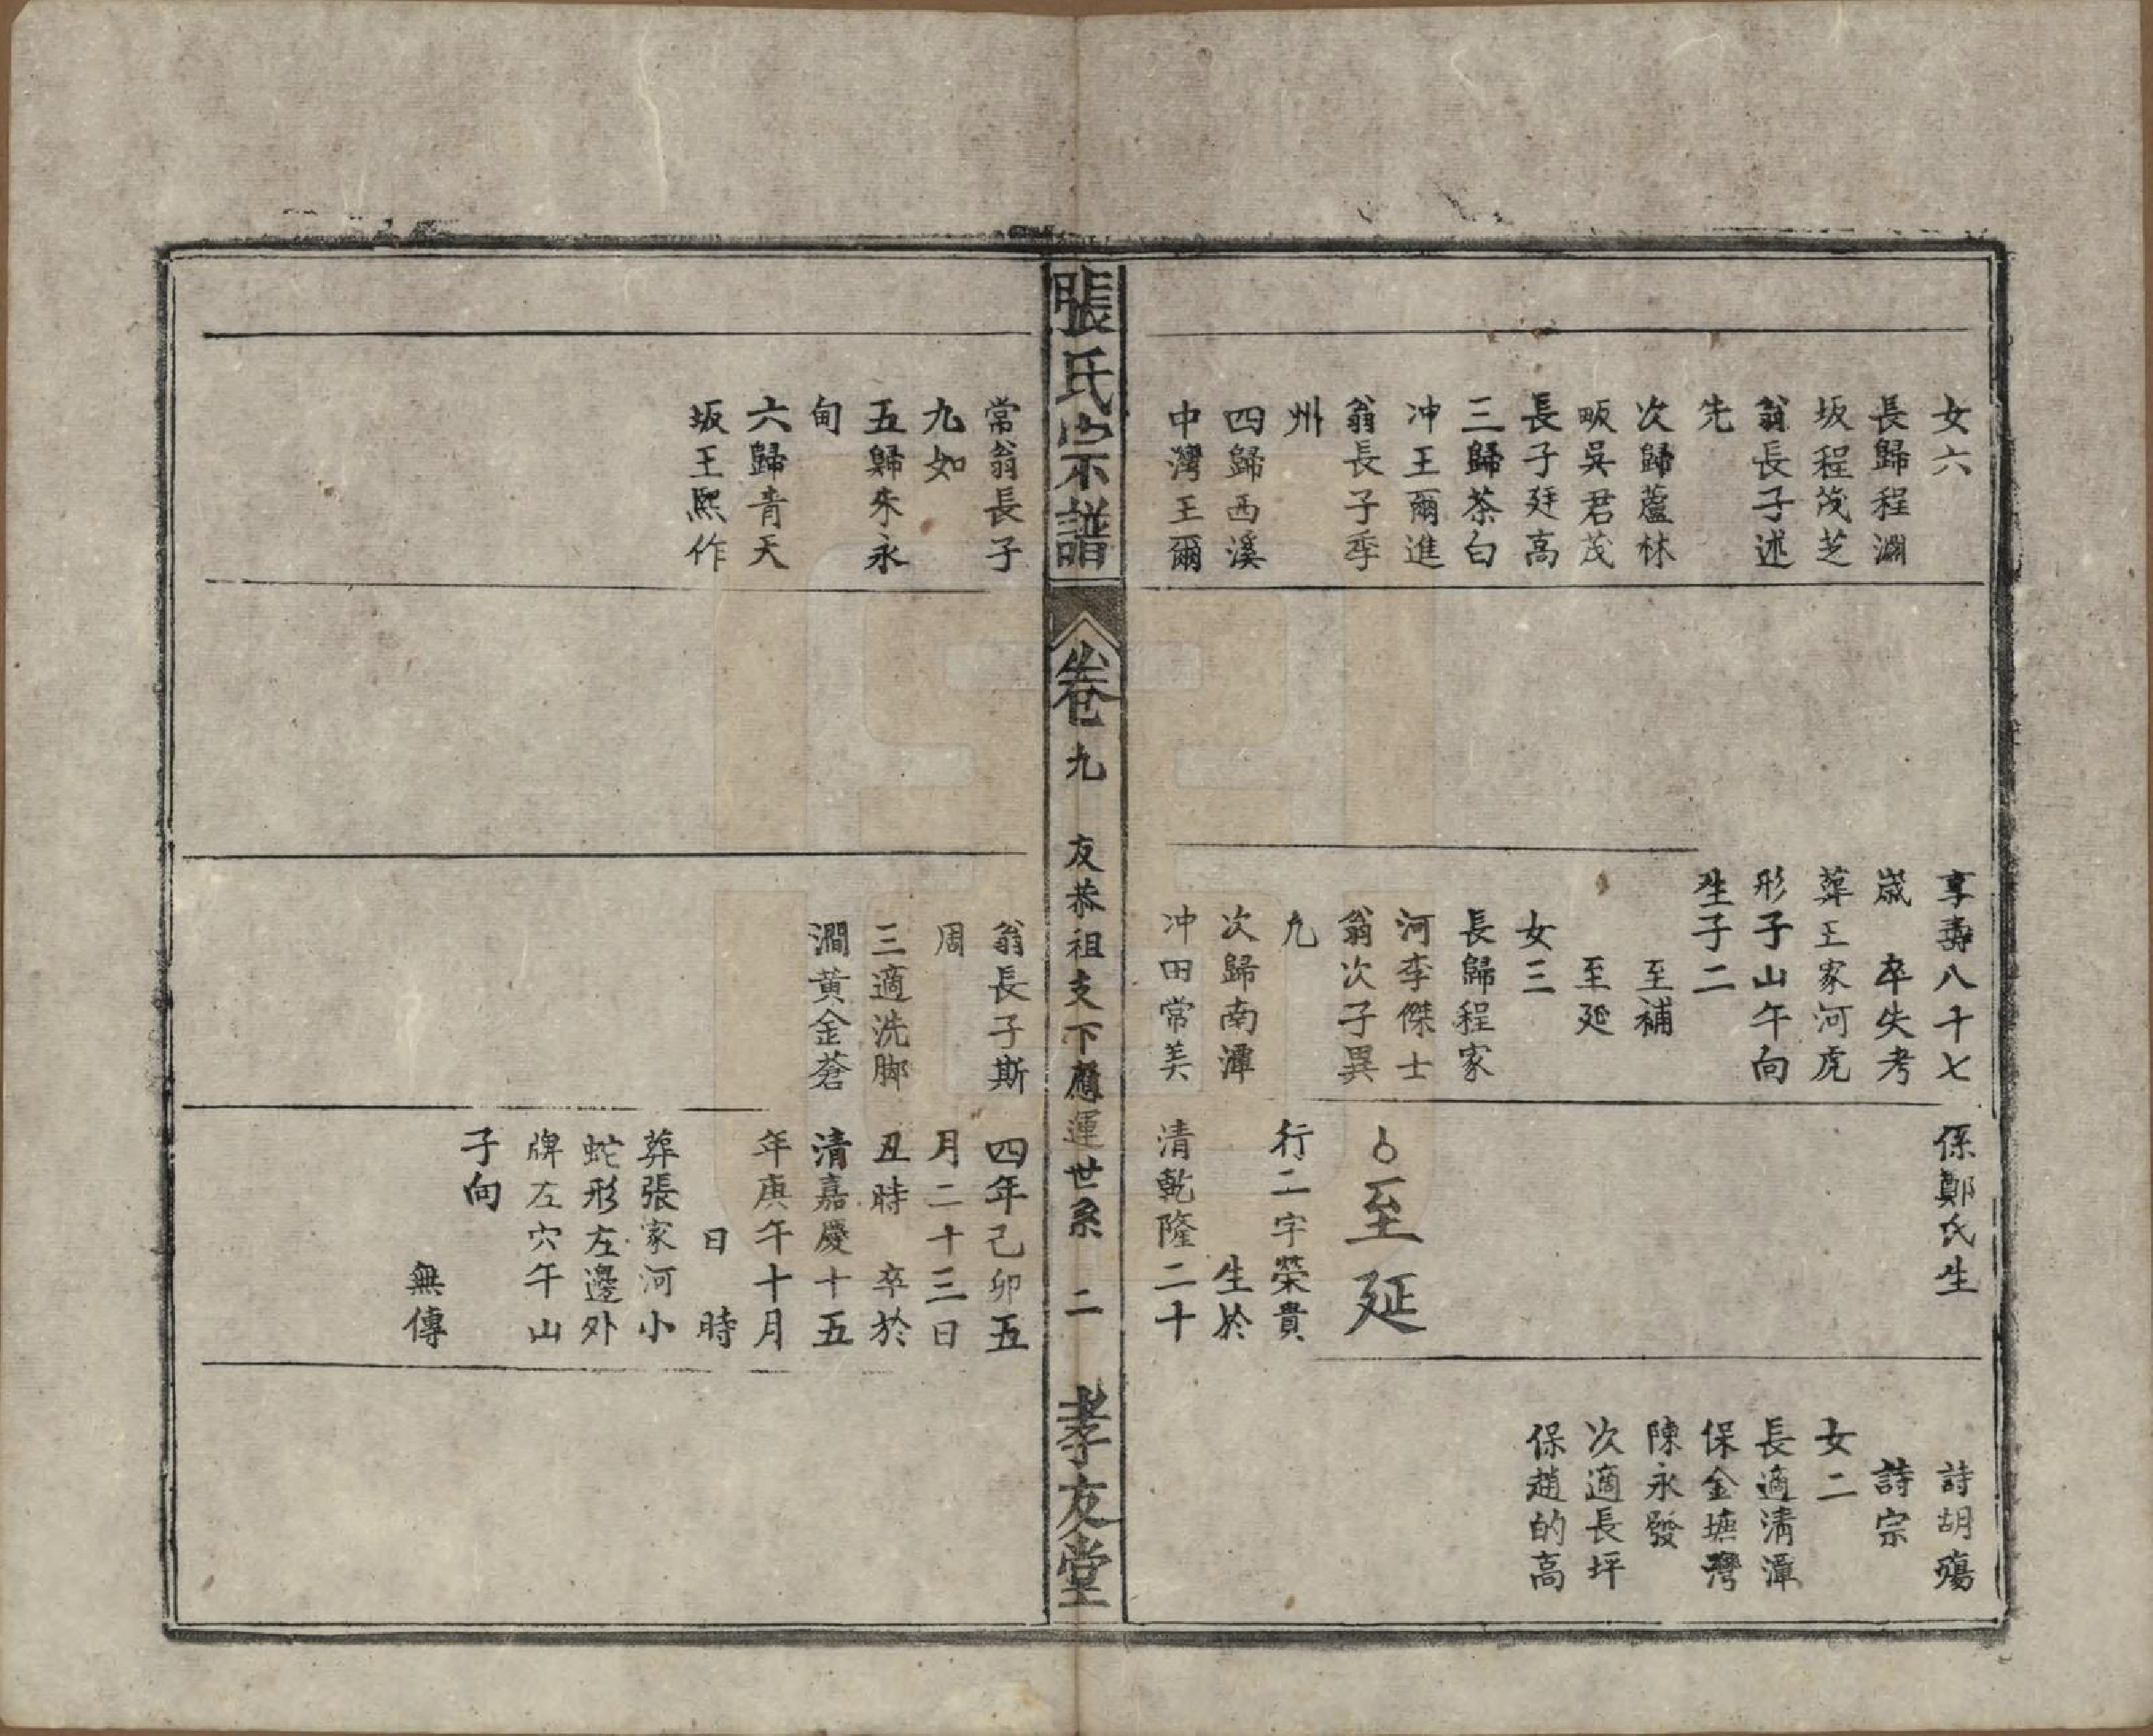 女六
長歸程瀾
坂程茂芝
翁長子述
先
次歸蘆林
畈吳君茂
長子廷高
三歸茶白
冲王爾進
翁長子季
州
四歸西溪
中灣王爾
享壽八十七
歲　卒失考
葬王家河虎
形子山午向
生子二
至補
至延
女三
長歸程家
河李傑士
翁次子異
九
次歸南潭
冲田常美
係鄭氏生
至延
行二字榮貴
生於
清乾隆二十
詩胡殤
詩宗
女二
長適清潭
保金塘灣
陳永發
次適長坪
保趙的高
張氏宗譜
卷九
友恭祖支下應運世系
二
孝友堂
常翁長子
九如
五歸朱永
甸
六歸青天
坂王熙作
翁長子斯
周
三適洗脚
澗黃金蒼
四年己卯五
月二十三日
丑時　卒於
清嘉慶十五
年庚午十月
日　時
葬張家河小
蛇形左邊外
牌左穴午山
子向
無傳